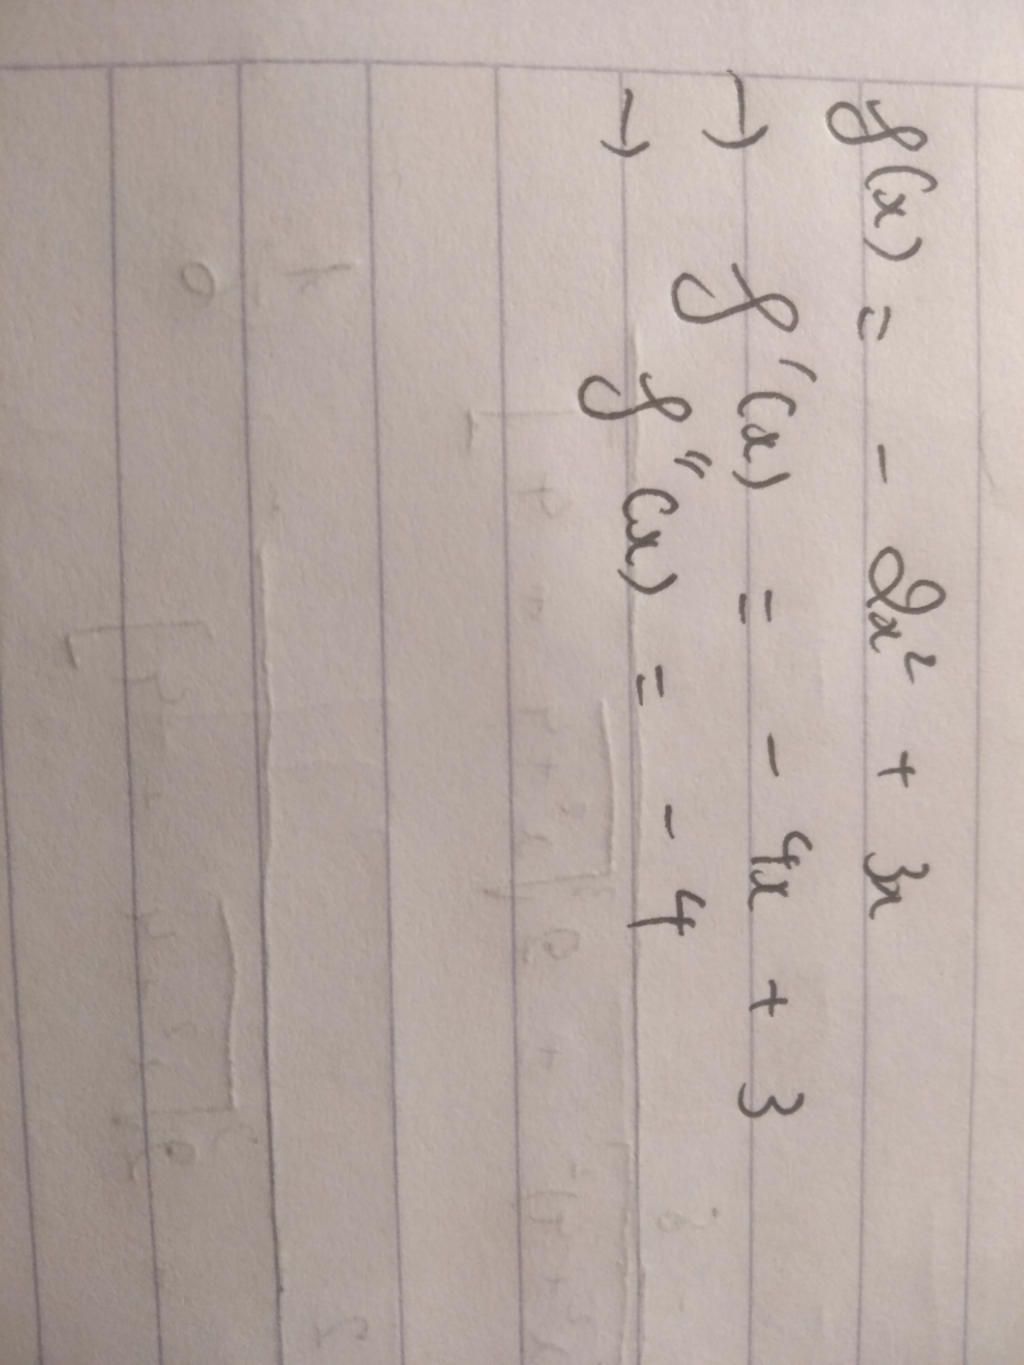 f(x) = - 2x² + 3x
→ f'(x) = - 4x + 3
→ f"(x) = - 4